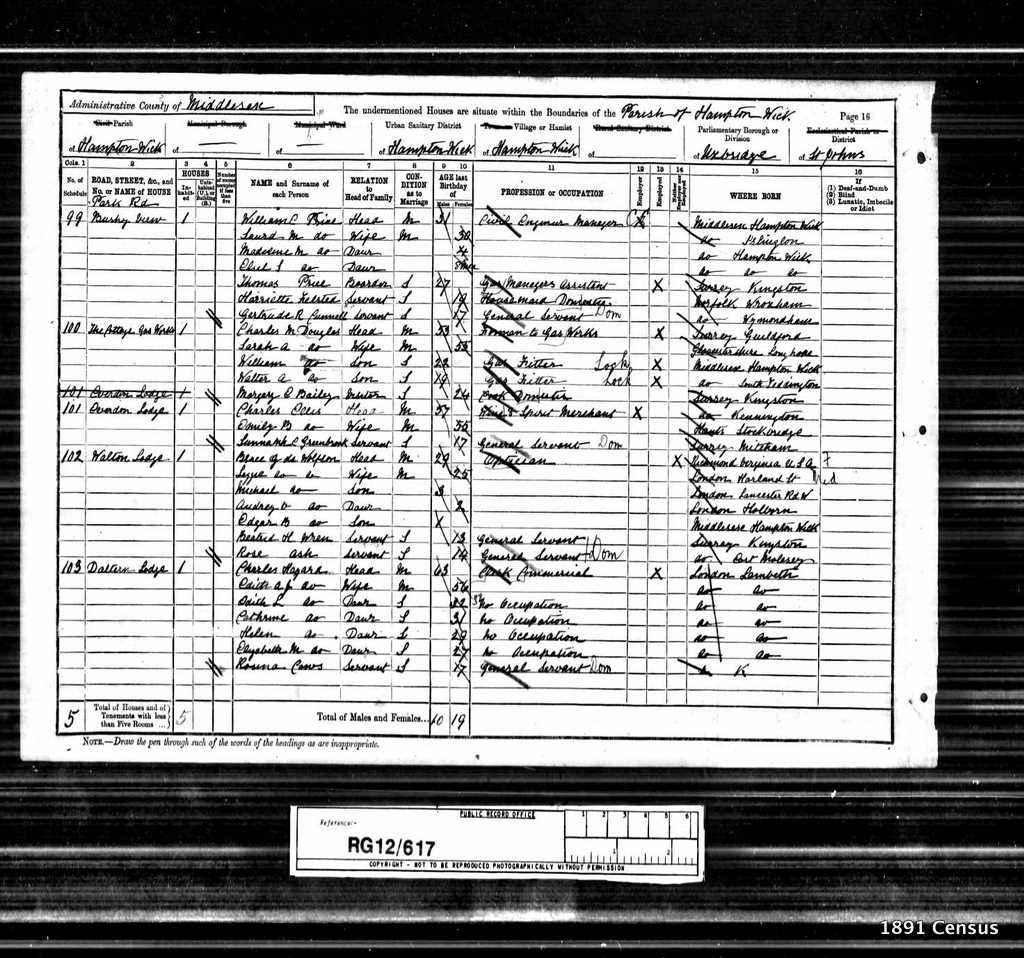 Administrative County of Middlesex
The undermentioned Houses are situate within the Boundaries of the Parish of Hampton Wick
Page 16
Civil Parish of Hampton Wick
Municipal Borough of
Municipal Ward of
Urban Sanitary District of Hampton Wick
Town or Village or Hamlet of Hampton Wick
Rural Sanitary District of
Parliamentary Borough or Division of Uxbridge
Ecclesiastical Parish or District of St Johns
Cols. 1 2 3 4 5 6 7 8 9 10 11 12 13 14 15 16
No. of Schedule
ROAD, STREET, &c., and No. or NAME of HOUSE
HOUSES
Inhabited
Uninhabited (U.), or Building (B.)
Number of rooms occupied if less than five
NAME and Surname of each Person
RELATION to Head of Family
CONDITION as to Marriage
AGE last Birthday of
Males Females
PROFESSION or OCCUPATION
Employer
Employed
Neither Employer nor Employed
WHERE BORN
If
(1) Deaf-and-Dumb
(2) Blind
(3) Lunatic, Imbecile or Idiot
Park Rd
99 Bushy View 1 William C Price Head M 31 Civil Engineer Manager X Middlesex Hampton Wick
Laura M do Wife M 30 do Islington
Madeline M do Daur 4 do Hampton Wick
do Daur do do do
Thomas Price Boarder S 27 Gas Managers Assistant X Surrey Kingston
Harriette Servant S 19 Housemaid Domestic Norfolk Wroxham
Gertrude R Servant S 17 General Servant Dom do Wymondham
100 The Cottage Gas Works 1 Charles M Douglas Head M 53 Foreman to Gas Works X Surrey Guildford
Sarah A do Wife M 53 Gloucestershire Longhope
William do Son S 22 Gas Fitter X Middlesex Hampton Wick
Walter A do Son S 19 Gas Fitter X do South Teddington
101 Overdon Lodge 1 Margery E Bailey Visitor S 24 Cook Domestic Surrey Kingston
101 Overdon Lodge 1 Charles Head M 57 Wine & Spirit Merchant X do Kennington
Emily B do Wife M 55 Hants Stockbridge
Servant S 17 General Servant Dom Surrey Mitcham
102 Walton Lodge 1 Head M 29 Optician X Richmond Virginia U S A
do Wife M 25 London Harland St
Michael do Son 3 London Lancaster Rd W
Audrey V do Daur 2 London Holborn
Edgar B do Son Middlesex Hampton Wick
Beatrice H Wren Servant S 13 General Servant Surrey Kingston
Rose Ash Servant S 14 General Servant Dom do East Molesey
103 Lodge 1 Charles Head M 63 Clerk Commercial X London Lambeth
Edith A J do Wife M 56 do do
Edith L do Daur S 32 No Occupation do do
Cathrine do Daur S 31 No Occupation do do
Helen do Daur S 29 No Occupation do do
Elizabeth M do Daur S 27 No Occupation do do
Rosina Caws Servant S 17 General Servant Dom K
5 Total of Houses and of Tenements with less than Five Rooms ... 5
Total of Males and Females... 10 19
NOTE.—Draw the pen through such of the words of the headings as are inappropriate.
PUBLIC RECORD OFFICE
Reference:-
RG12/617
1 2 3 4 5 6
1 2
COPYRIGHT - NOT TO BE REPRODUCED PHOTOGRAPHICALLY WITHOUT PERMISSION
1891 Census